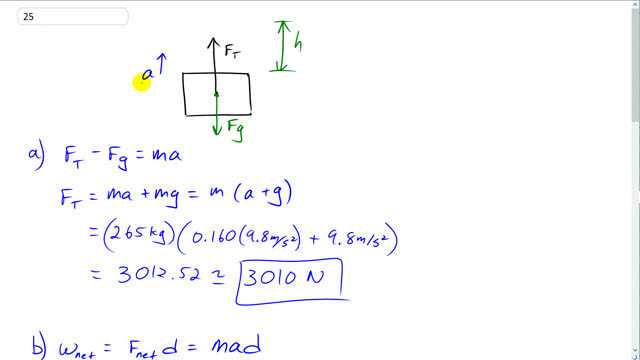 25
h
F_T
a
Fg
a) F_T - Fg = ma
F_T = ma + mg = m (a + g)
= (265 kg) (0.160 (9.8 m/s²) + 9.8 m/s²)
= 3012.52 ≃ 3010 N
b) W_net = F_net d = mad